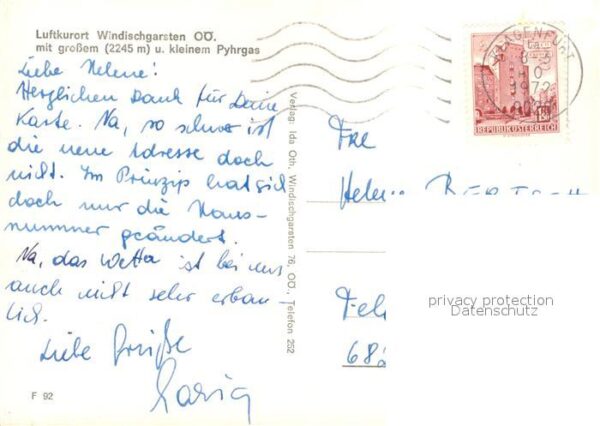 Luftkurort Windischgarsten OÖ.
mit großem (2245 m) u. kleinem Pyhrgas
Liebe Helene!
Herzlichen Dank für Deine
Karte. Na, so schwer ist
die neue Adresse doch
nicht. Im Prinzip hat sich
doch nur die Haus-
nummer geändert.
Na, das Wetter ist bei uns
auch nicht sehr erbau
lich.
Liebe Grüße
F 92
Verlag: Ida Oth, Windischgarsten 76, OÖ., Telefon 252
KLAGENFURT
REPUBLIK ÖSTERREICH
Frl
Fel
privacy protection
Datenschutz